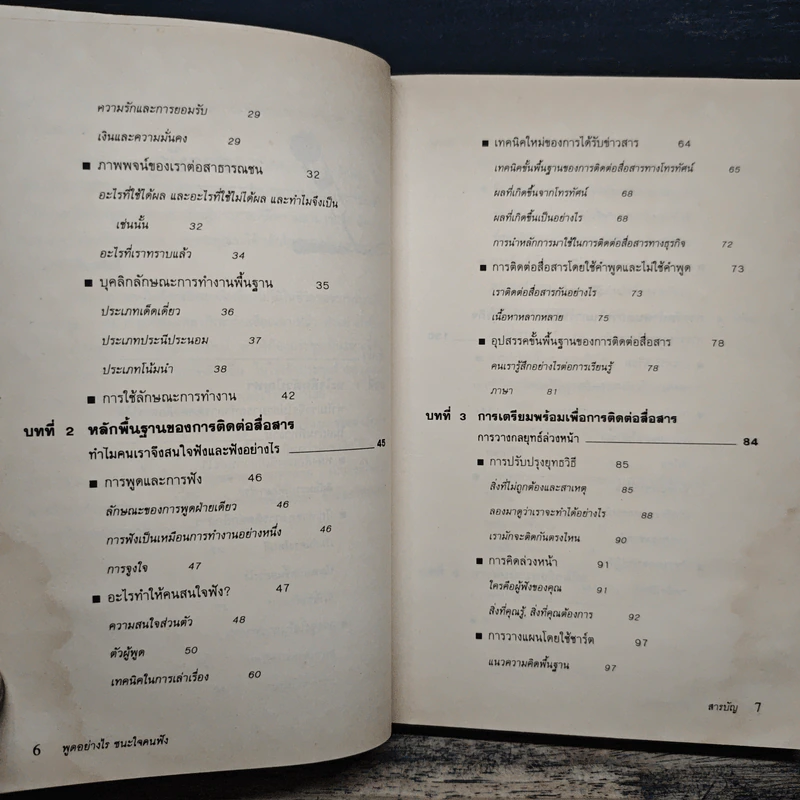 ความรักและการยอมรับ 29
เงินและความมั่นคง 29
■ ภาพพจน์ของเราต่อสาธารณชน 32
อะไรที่ใช้ได้ผล และอะไรที่ใช้ไม่ได้ผล และทำไมจึงเป็น
เช่นนั้น 32
อะไรที่เราทราบแล้ว 34
■ บุคลิกลักษณะการทำงานพื้นฐาน 35
ประเภทเด็ดเดี่ยว 36
ประเภทประนีประนอม 37
ประเภทโน้มนำ 38
■ การใช้ลักษณะการทำงาน 42
บทที่ 2 หลักพื้นฐานของการติดต่อสื่อสาร
ทำไมคนเราจึงสนใจฟังและฟังอย่างไร 45
■ การพูดและการฟัง 46
ลักษณะของการพูดฝ่ายเดียว 46
การฟังเป็นเหมือนการทำงานอย่างหนึ่ง 46
การจูงใจ 47
■ อะไรทำให้คนสนใจฟัง? 47
ความสนใจส่วนตัว 48
ตัวผู้พูด 50
เทคนิคในการเล่าเรื่อง 60
6 พูดอย่างไร ชนะใจคนฟัง
■ เทคนิคใหม่ของการได้รับข่าวสาร 64
เทคนิคขั้นพื้นฐานของการติดต่อสื่อสารทางโทรทัศน์ 65
ผลที่เกิดขึ้นจากโทรทัศน์ 68
ผลที่เกิดขึ้นเป็นอย่างไร 68
การนำหลักการมาใช้ในการติดต่อสื่อสารทางธุรกิจ 72
■ การติดต่อสื่อสารโดยใช้คำพูดและไม่ใช้คำพูด 73
เราติดต่อสื่อสารกันอย่างไร 73
เนื้อหาหลากหลาย 75
■ อุปสรรคขั้นพื้นฐานของการติดต่อสื่อสาร 78
คนเรารู้สึกอย่างไรต่อการเรียนรู้ 78
ภาษา 81
บทที่ 3 การเตรียมพร้อมเพื่อการติดต่อสื่อสาร
การวางกลยุทธ์ล่วงหน้า 84
■ การปรับปรุงยุทธวิธี 85
สิ่งที่ไม่ถูกต้องและสาเหตุ 85
ลองมาดูว่าเราจะทำได้อย่างไร 88
เรามักจะติดกันตรงไหน 90
■ การคิดล่วงหน้า 91
ใครคือผู้ฟังของคุณ 91
สิ่งที่คุณรู้, สิ่งที่คุณต้องการ 92
■ การวางแผนโดยใช้ชาร์ต 97
แนวความคิดพื้นฐาน 97
สารบัญ 7